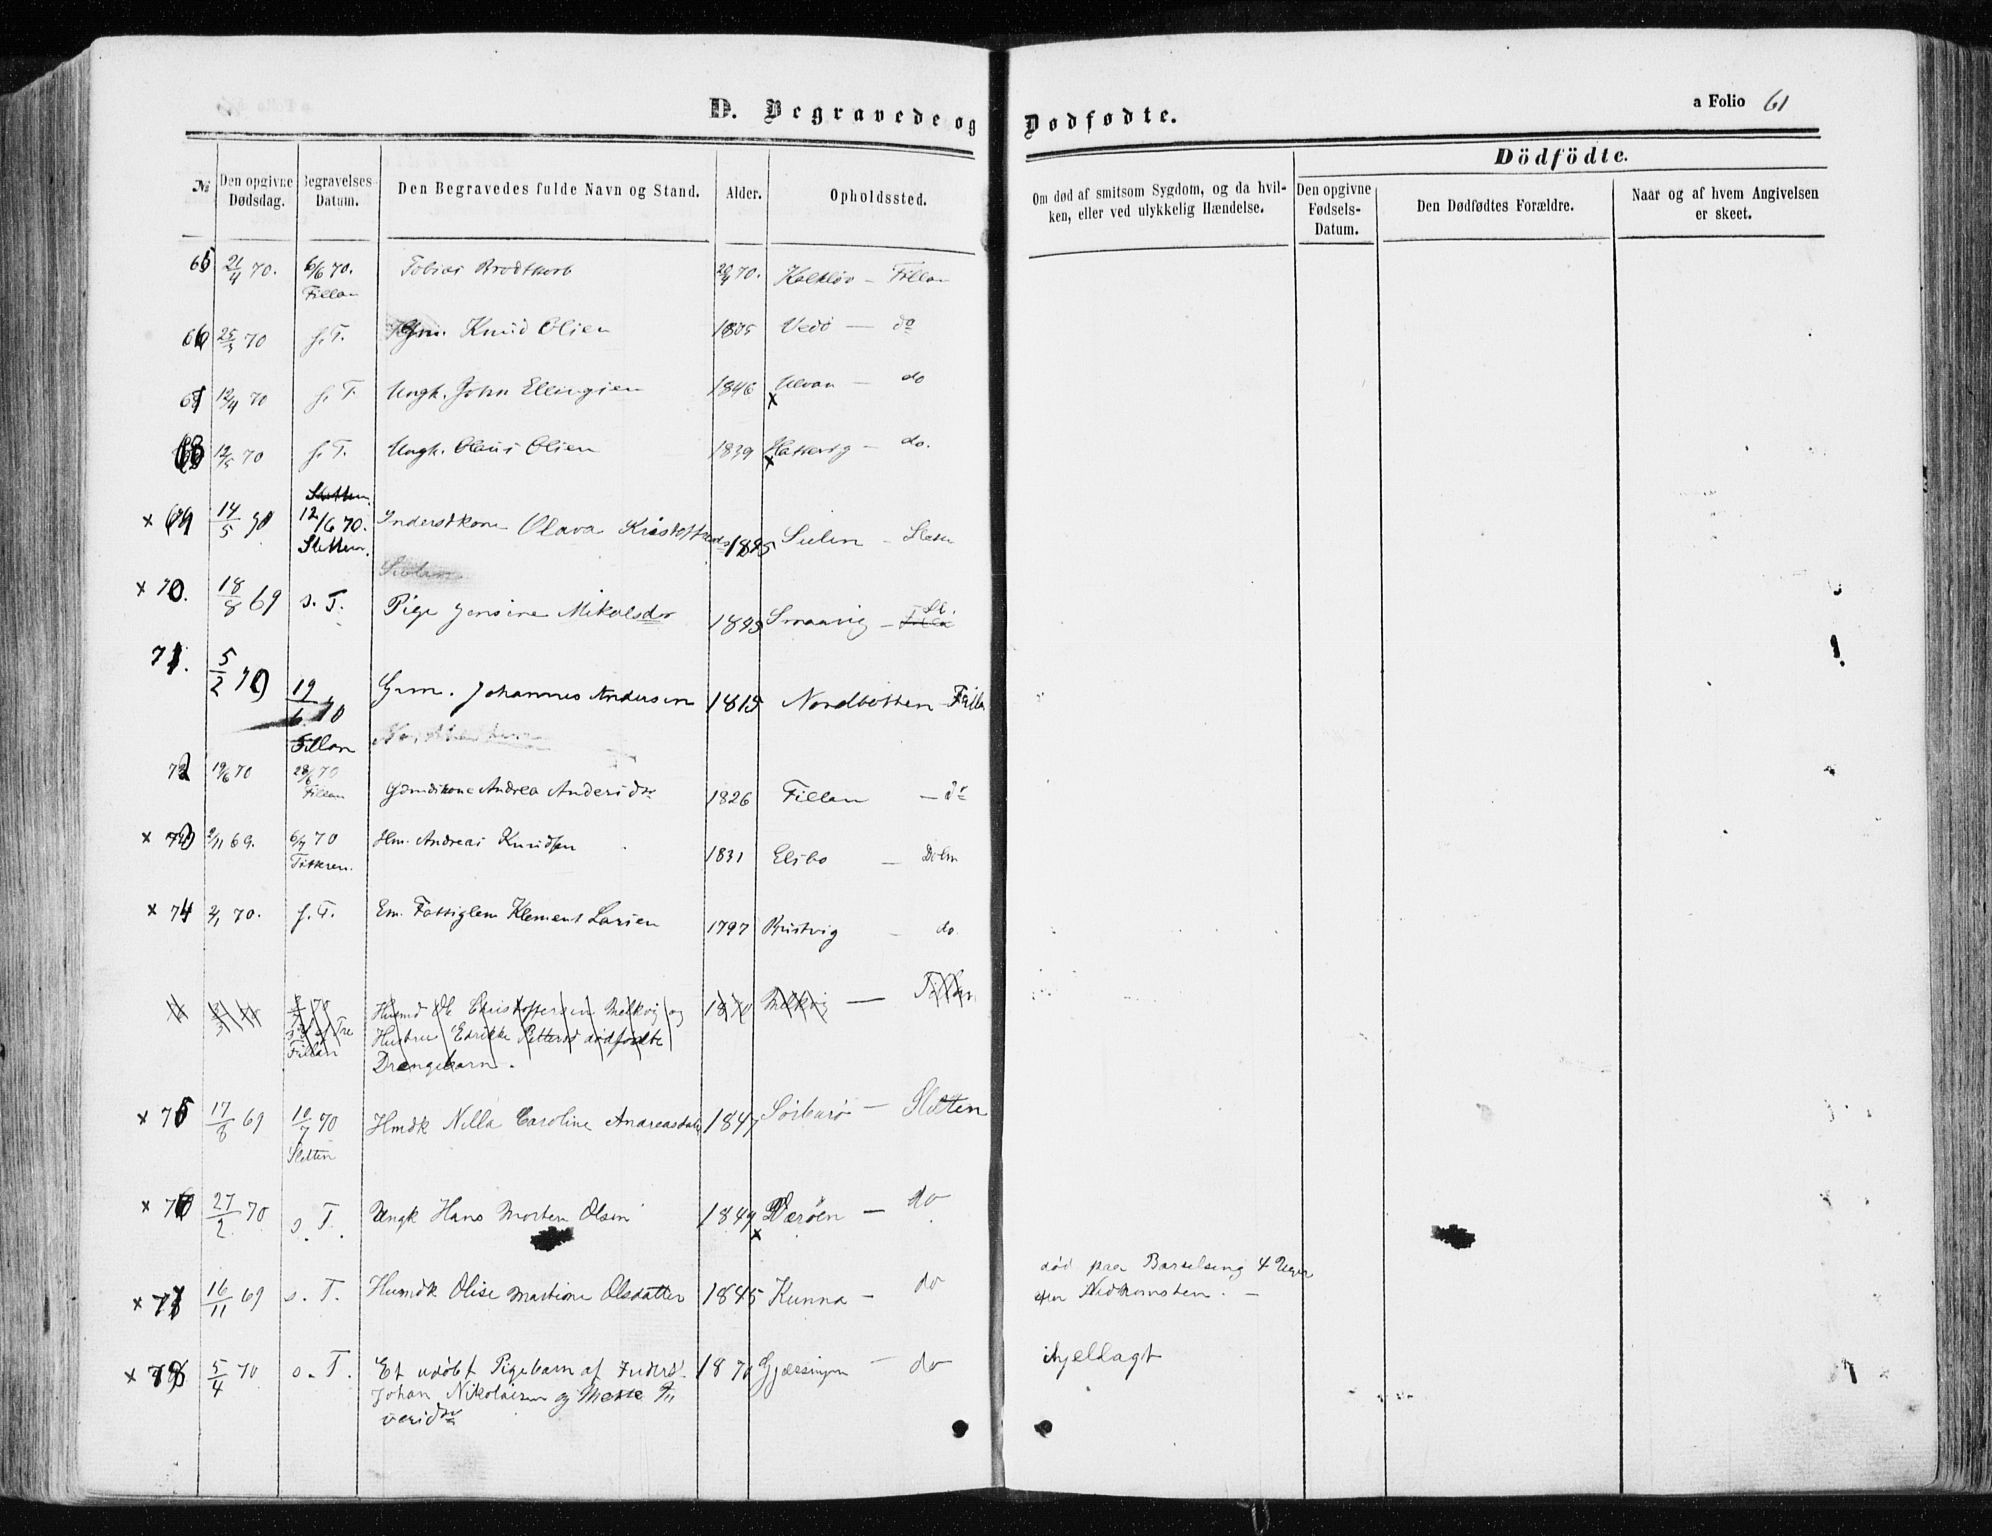 D. Begravede og Dødfødte.
a Folio 61
Dödfödte.
No
Den opgivne Dødsdag.
Begravelses-Datum.
Den Begravedes fulde Navn og Stand.
Alder.
Opholdssted.
Om død af smitsom Sygdom, og da hvil-
ken, eller ved ulykkelig Hændelse.
Den opgivne Fødsels-Datum.
Den Dødfødtes Forældre.
Naar og af hvem Angivelsen
er skeet.
65 21/4 70. 6/6 70. Tobias Brodtkorb 70. Fillan
Fillan
66 25/3 70 s. T. Gm. Knud Olsen 1805 Vedø — do
12/4 70 s. T. Ungk. John Ellingsen 1846 Ulvan — do
68 12/5 70 s. T. Ungk. Olaus Olsen 1839 — do.
Sletten
x 69 14/5 70 12/6 70. Inderstkone Olava
Sletten.
x 70. 18/8 69 s. T. Pige Jensine Mikalsdr Smaavig — Sl.
71. 5/2 70 19/6 70 Gm. Johannes Andersen Nordbotten — Filla
Fillan
72 19/6 70 28/6 70 Andrea Andersdr 1826 Fillan — do
Fillan
x 73 2/11 69. 6/7 70 Hm. Andreas Knudsen 1831 Elsbo — Dolm
Titteren.
x 74 2/1 70. s. T. Em. Fattiglem Klement Larsen 1797 — do.
70 Husmd Ole Christoffersen Melkvig og 1870 Melkvig — Fillan
Hustru Edrikke Petters dødfødte
Fillan
Drengebarn.
x 75 17/8 69 10/7 70 Hmdk Nilla Caroline Andreasdatr 1847 — Sletten
Sletten
x 76 27/2 70. s. T. Ungk Hans Morten Olsen 1849 Værøen — do
x 77 16/11 69 s. T. Husmdk Olise Martione Olsdatter 1845 Kunna — do
død paa Barselseng 4 Uger
efter Nedkomsten. —
x 78 5/4 70 s. T. Et udøbt Pigebarn af Inderst. 1870 Gjæssingen — do
ihjellagt
Johan Nikolaisen og Mette